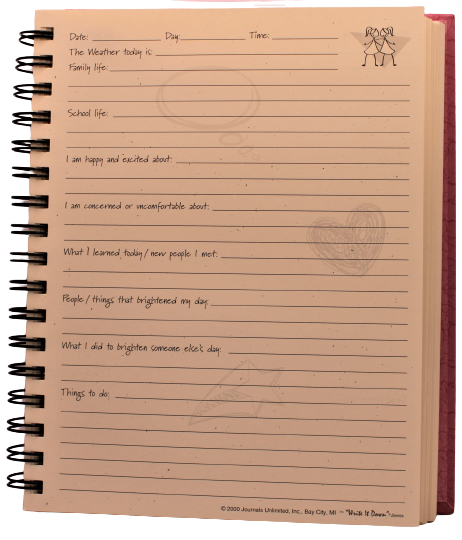 Date: Day: Time:
The Weather today is:
Family life:
School life:
I am happy and excited about:
I am concerned or uncomfortable about:
What I learned today/new people I met:
People/things that brightened my day:
What I did to brighten someone else's day:
Things to do:
© 2000 Journals Unlimited, Inc., Bay City, MI ~ "Write It Down"